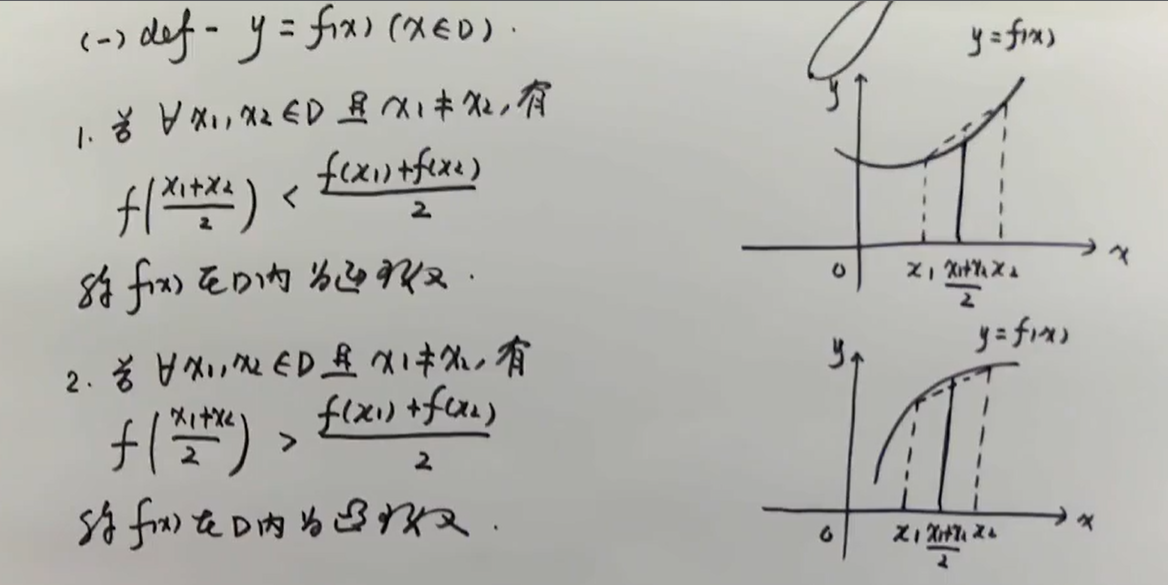 (一) def - y = f(x) (x∈D).
1. 若 ∀x₁,x₂∈D 且 x₁≠x₂, 有
f((x₁+x₂)/2) < (f(x₁)+f(x₂))/2
称 f(x) 在D内 为凹函数.
2. 若 ∀x₁,x₂∈D 且 x₁≠x₂, 有
f((x₁+x₂)/2) > (f(x₁)+f(x₂))/2
称 f(x) 在D内 为凸函数.
y=f(x)
y
0 x₁ (x₁+x₂)/2 x₂ x
y=f(x)
y
0 x₁ (x₁+x₂)/2 x₂ x